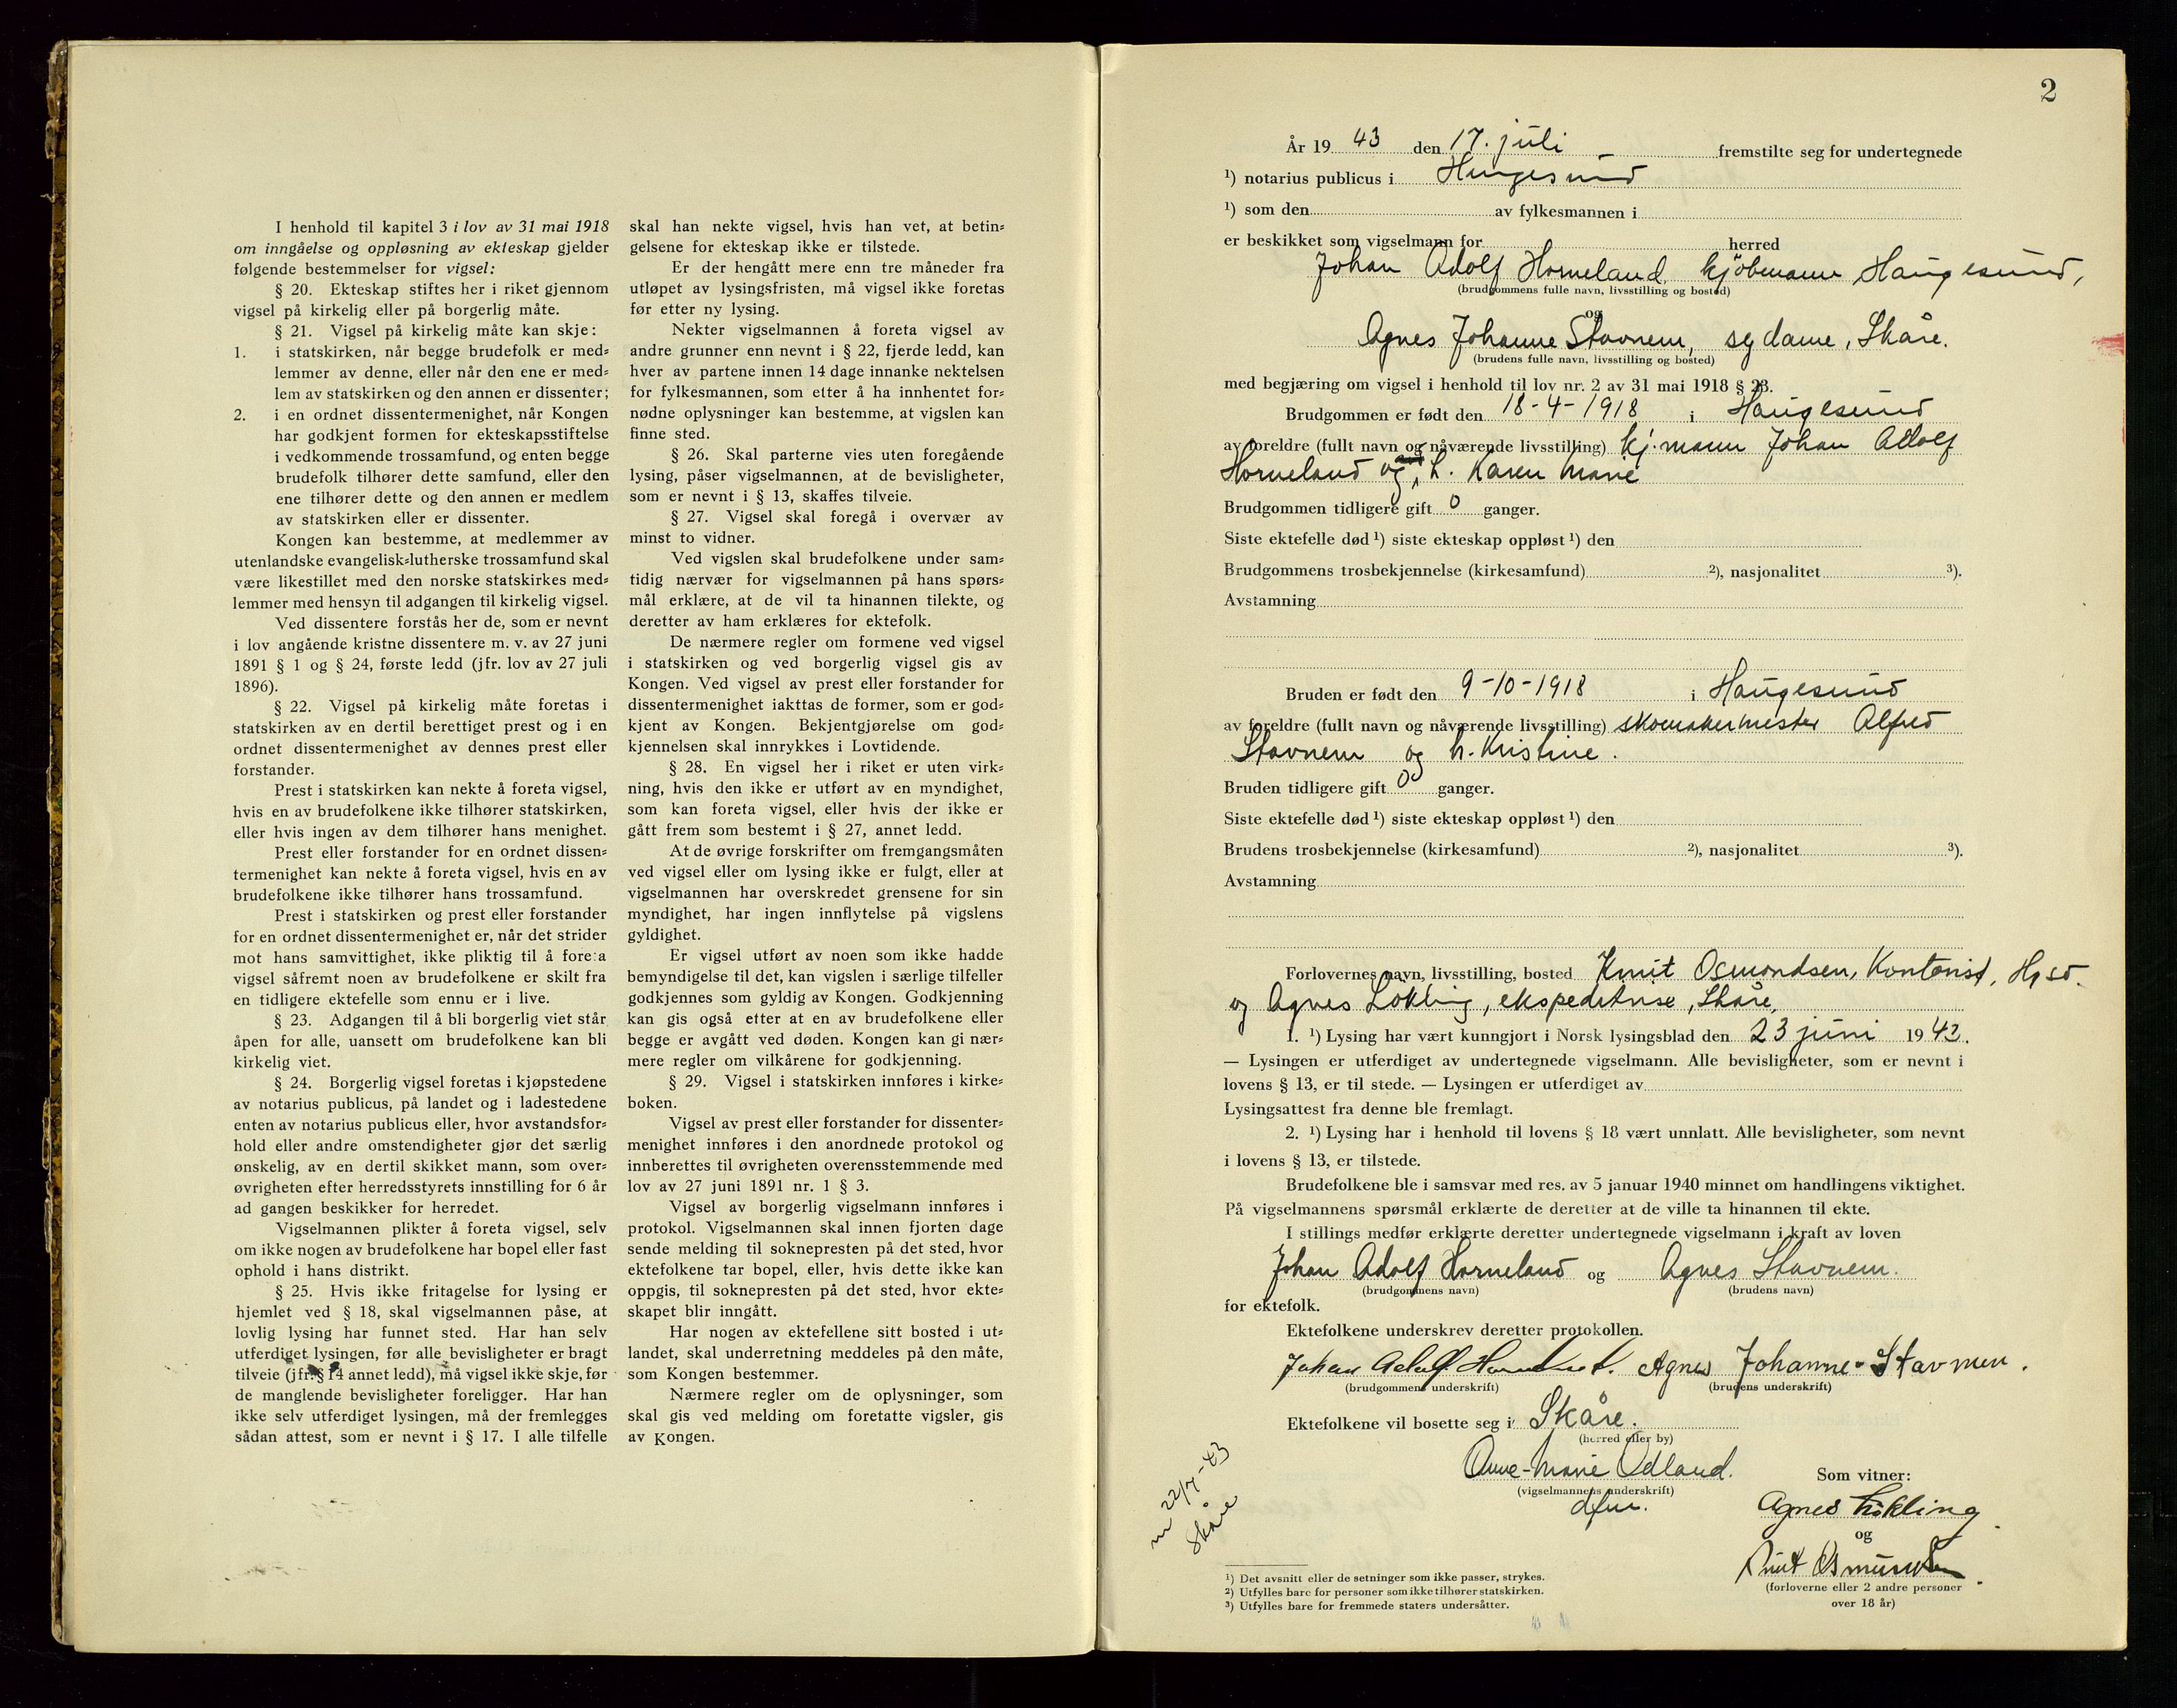 I henhold til kapitel 3 i lov av 31 mai 1918
om inngåelse og oppløsning av ekteskap gjelder
følgende bestemmelser for vigsel:
§ 20. Ekteskap stiftes her i riket gjennom
vigsel på kirkelig eller på borgerlig måte.
§ 21. Vigsel på kirkelig måte kan skje:
1. i statskirken, når begge brudefolk er med=
lemmer av denne, eller når den ene er med=
lem av statskirken og den annen er dissenter;
2. i en ordnet dissentermenighet, når Kongen
har godkjent formen for ekteskapsstiftelse
i vedkommende trossamfund, og enten begge
brudefolk tilhører dette samfund, eller den
ene tilhører dette og den annen er medlem
av statskirken eller er dissenter.
Kongen kan bestemme, at medlemmer av
utenlandske evangelisk=lutherske trossamfund skal
være likestillet med den norske statskirkes med=
lemmer med hensyn til adgangen til kirkelig vigsel.
Ved dissentere forstås her de, som er nevnt
i lov angående kristne dissentere m. v. av 27 juni
1891 § 1 og § 24, første ledd (jfr. lov av 27 juli
1896).
§ 22. Vigsel på kirkelig måte foretas i
statskirken av en dertil berettiget prest og i en
ordnet dissentermenighet av dennes prest eller
forstander.
Prest i statskirken kan nekte å foreta vigsel,
hvis en av brudefolkene ikke tilhører statskirken,
eller hvis ingen av dem tilhører hans menighet.
Prest eller forstander for en ordnet dissen=
termenighet kan nekte å foreta vigsel, hvis en av
brudefolkene ikke tilhører hans trossamfund.
Prest i statskirken og prest eller forstander
for en ordnet dissentermenighet er, når det strider
mot hans samvittighet, ikke pliktig til å foreta
vigsel såfremt noen av brudefolkene er skilt fra
en tidligere ektefelle som ennu er i live.
§ 23. Adgangen til å bli borgerlig viet står
åpen for alle, uansett om brudefolkene kan bli
kirkelig viet.
§ 24. Borgerlig vigsel foretas i kjøpstedene
av notarius publicus, på landet og i ladestedene
enten av notarius publicus eller, hvor avstandsfor=
hold eller andre omstendigheter gjør det særlig
ønskelig, av en dertil skikket mann, som over=
øvrigheten efter herredsstyrets innstilling for 6 år
ad gangen beskikker for herredet.
Vigselmannen plikter å foreta vigsel, selv
om ikke nogen av brudefolkene har bopel eller fast
ophold i hans distrikt.
§ 25. Hvis ikke fritagelse for lysing er
hjemlet ved § 18, skal vigselmannen påse, at
lovlig lysing har funnet sted. Har han selv
utferdiget lysingen, før alle bevisligheter er bragt
tilveie (jfr. § 14 annet ledd), må vigsel ikke skje, før
de manglende bevisligheter foreligger. Har han
ikke selv utferdiget lysingen, må der fremlegges
sådan attest, som er nevnt i § 17. I alle tilfelle
skal han nekte vigsel, hvis han vet, at betin=
gelsene for ekteskap ikke er tilstede.
Er der hengått mere enn tre måneder fra
utløpet av lysingsfristen, må vigsel ikke foretas
før etter ny lysing.
Nekter vigselmannen å foreta vigsel av
andre grunner enn nevnt i § 22, fjerde ledd, kan
hver av partene innen 14 dage innanke nektelsen
for fylkesmannen, som etter å ha innhentet for=
nødne oplysninger kan bestemme, at vigslen kan
finne sted.
§ 26. Skal parterne vies uten foregående
lysing, påser vigselmannen, at de bevisligheter,
som er nevnt i § 13, skaffes tilveie.
§ 27. Vigsel skal foregå i overvær av
minst to vidner.
Ved vigslen skal brudefolkene under sam=
tidig nærvær for vigselmannen på hans spørs=
mål erklære, at de vil ta hinannen tilekte, og
deretter av ham erklæres for ektefolk.
De nærmere regler om formene ved vigsel
i statskirken og ved borgerlig vigsel gis av
Kongen. Ved vigsel av prest eller forstander for
dissentermenighet iakttas de former, som er god=
kjent av Kongen. Bekjentgjørelse om god=
kjennelsen skal innrykkes i Lovtidende.
§ 28. En vigsel her i riket er uten virk=
ning, hvis den ikke er utført av en myndighet,
som kan foreta vigsel, eller hvis der ikke er
gått frem som bestemt i § 27, annet ledd.
At de øvrige forskrifter om fremgangsmåten
ved vigsel eller om lysing ikke er fulgt, eller at
vigselmannen har overskredet grensene for sin
myndighet, har ingen innflytelse på vigslens
gyldighet.
Er vigsel utført av noen som ikke hadde
bemyndigelse til det, kan vigslen i særlige tilfeller
godkjennes som gyldig av Kongen. Godkjenning
kan gis også etter at en av brudefolkene eller
begge er avgått ved døden. Kongen kan gi nær=
mere regler om vilkårene for godkjenning.
§ 29. Vigsel i statskirken innføres i kirke=
boken.
Vigsel av prest eller forstander for dissenter=
menighet innføres i den anordnede protokol og
innberettes til øvrigheten overensstemmende med
lov av 27 juni 1891 nr. 1 § 3.
Vigsel av borgerlig vigselmann innføres i
protokol. Vigselmannen skal innen fjorten dage
sende melding til soknepresten på det sted, hvor
ektefolkene tar bopel, eller, hvis dette ikke kan
oppgis, til soknepresten på det sted, hvor ekte=
skapet blir inngått.
Har nogen av ektefellene sitt bosted i ut=
landet, skal underretning meddeles på den måte,
som Kongen bestemmer.
Nærmere regler om de oplysninger, som
skal gis ved melding om foretatte vigsler, gis
av Kongen.
2
År 19 43 den 17. juli fremstilte seg for undertegnede
¹) notarius publicus i Haugesund
¹) som den av fylkesmannen i
er beskikket som vigselmann for herred
Johan Adolf Horneland, kjöbmann Haugesund,
(brudgommens fulle navn, livsstilling og bosted)
og
Agnes Johanne Stavnem, sydame, Skåre.
(brudens fulle navn, livsstilling og bosted)
med begjæring om vigsel i henhold til lov nr. 2 av 31 mai 1918 § 23.
Brudgommen er født den 18-4-1918 i Haugesund
av foreldre (fullt navn og nåværende livsstilling) kj.mann Johan Adolf
Horneland og h. Karen Marie
Brudgommen tidligere gift 0 ganger.
Siste ektefelle død ¹) siste ekteskap oppløst ¹) den
Brudgommens trosbekjennelse (kirkesamfund) ²), nasjonalitet ³).
Avstamning
Bruden er født den 9-10-1918 i Haugesund
av foreldre (fullt navn og nåværende livsstilling) skomakermester Alfred
Stavnem og h. Kristine.
Bruden tidligere gift 0 ganger.
Siste ektefelle død ¹) siste ekteskap oppløst ¹) den
Brudens trosbekjennelse (kirkesamfund) ²), nasjonalitet ³).
Avstamning
Forlovernes navn, livsstilling, bosted Knut Osmondsen, Kontorist, Hgsd.
og Agnes Lökling, ekspeditrise, Skåre,
1. ¹) Lysing har vært kunngjort i Norsk lysingsblad den 23 juni 1943.
— Lysingen er utferdiget av undertegnede vigselmann. Alle bevisligheter, som er nevnt i
lovens § 13, er til stede. — Lysingen er utferdiget av
Lysingsattest fra denne ble fremlagt.
2. ¹) Lysing har i henhold til lovens § 18 vært unnlatt. Alle bevisligheter, som nevnt
i lovens § 13, er tilstede.
Brudefolkene ble i samsvar med res. av 5 januar 1940 minnet om handlingens viktighet.
På vigselmannens spørsmål erklærte de deretter at de ville ta hinannen til ekte.
I stillings medfør erklærte deretter undertegnede vigselmann i kraft av loven
Johan Adolf Horneland og Agnes Stavnem.
(brudgommens navn) (brudens navn)
for ektefolk.
Ektefolkene underskrev deretter protokollen.
Johan Adolf Horneland. Agnes Johanne Stavnem.
(brudgommens underskrift) (brudens underskrift)
Ektefolkene vil bosette seg i Skåre.
(herred eller by)
Anne-Marie Ödland.
(vigselmannens underskrift)
dfm.
Som vitner:
Agnes Lökling
og
Knut Osmundsen.
(forloverne eller 2 andre personer
over 18 år)
m 22/7-43
Skåre
¹) Det avsnitt eller de setninger som ikke passer, strykes.
²) Utfylles bare for personer som ikke tilhører statskirken.
³) Utfylles bare for fremmede staters undersåtter.